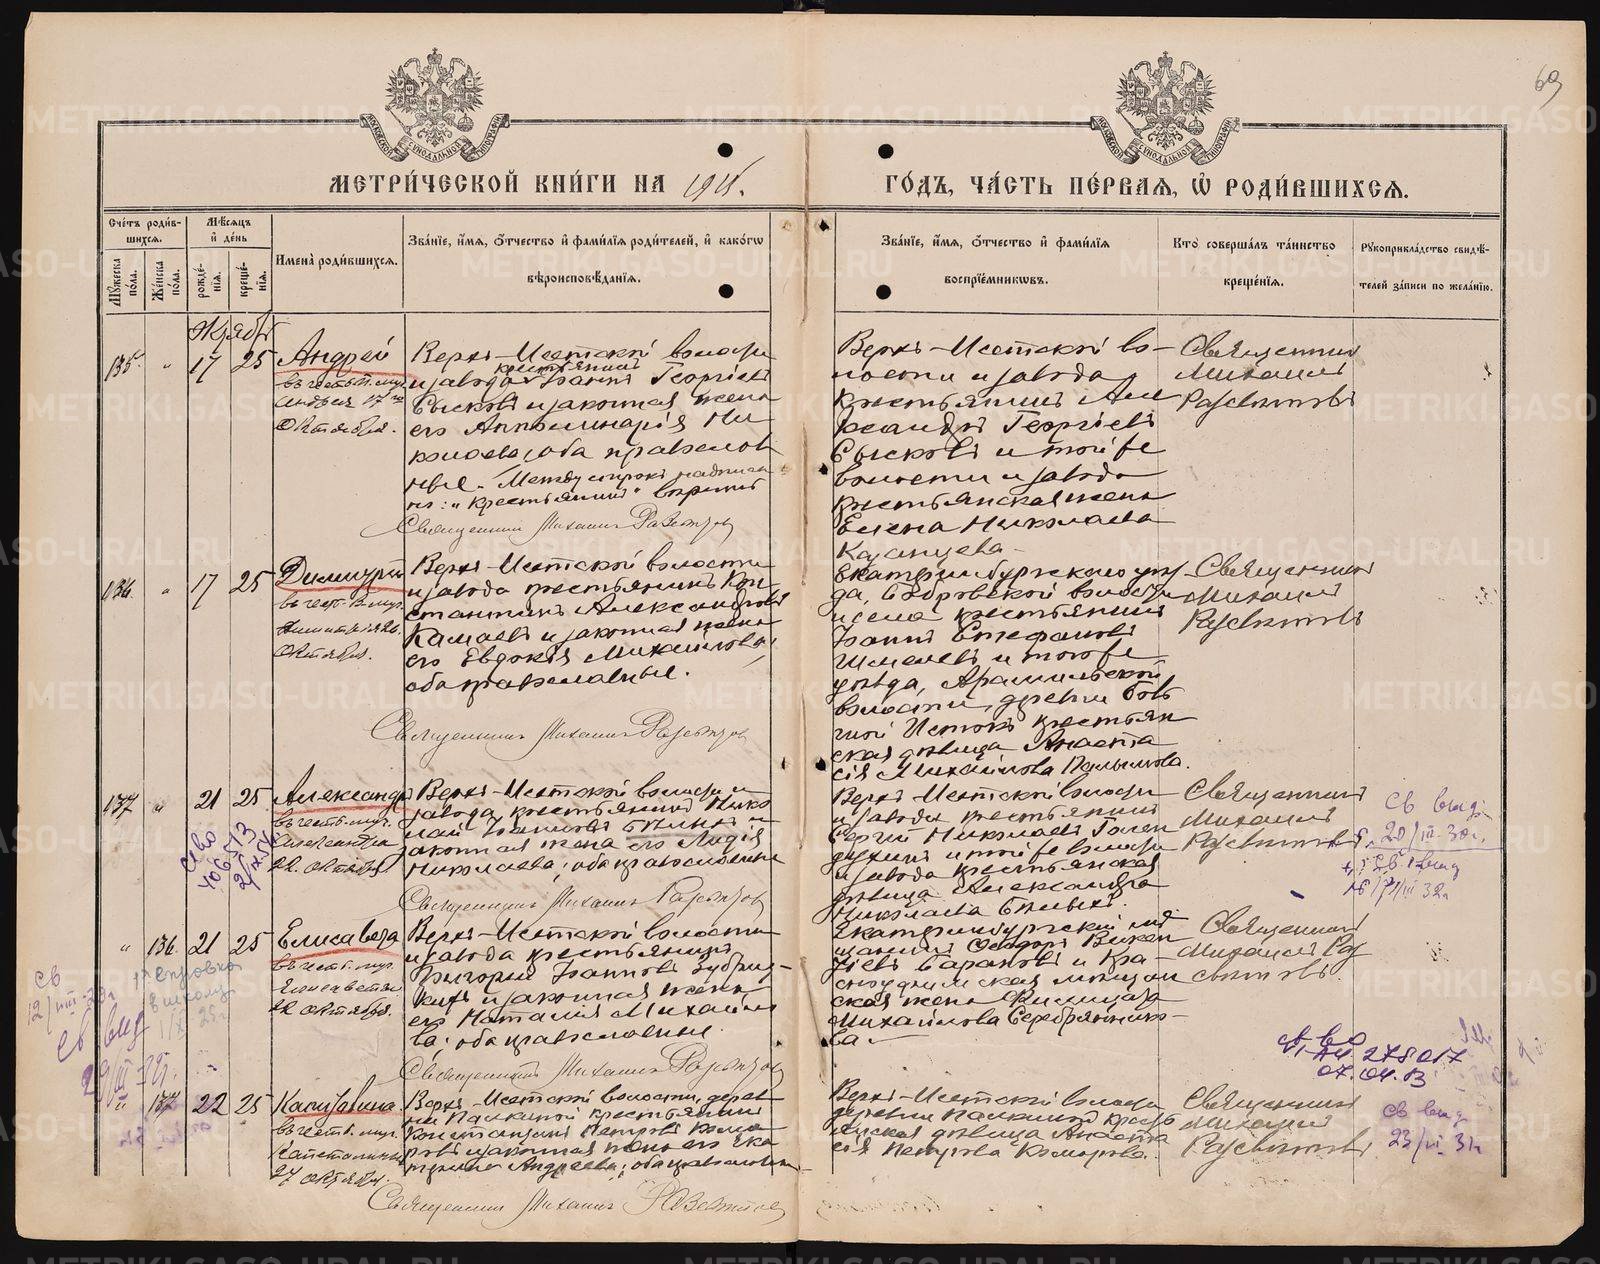 69
МЕТРИ́ЧЕСКОЙ КНИ́ГИ НА
ГО́ДЪ, ЧА́СТЬ ПЕ́РВАѦ, Ѡ҆ РОДИ́ВШИХСѦ.
Сче́тъ роди́в-
шихсѧ.
Мѣ́сѧцъ
и҆ де́нь
Мꙋ́жеска по́ла.
Же́нска по́ла.
рожде́-
нїѧ.
креще́-
нїѧ.
Имена̀ роди́вшихсѧ.
Зва́нїе, и҆́мѧ, ѻ҆́тчество и҆ фами́лїѧ роди́телей, и҆ како́гѡ
вѣроисповѣ́данїѧ.
Зва́нїе, и҆́мѧ, ѻ҆́тчество и҆ фами́лїѧ
воспрїе́мникѡвъ.
Кто̀ соверша́лъ та́инство
креще́нїѧ.
Рꙋкоприкла́дство свидѣ́-
телей за́писи по жела́нїю.
Октябрь
135. " 17 25 Андрей
въ честь п. муч.
Андрея 17го
Октября.
Верхъ-Исетской волости
крестьянинъ
и завода Іоаннъ Георгіевъ
Сысковъ и законная жена
его Апполинарія Ни
колаева, оба православ
ные. Между строкъ надписан
но: „крестьянинъ" вѣрить
Священникъ Михаилъ Разсвѣтовъ
Верхъ-Исетской во-
лости и завода
крестьянинъ Алек
сандръ Георгіевъ
Сысковъ и той же
волости и завода
крестьянская жена
Елена Николаева
Казанцева
Священникъ
Михаилъ
Разсвѣтовъ
136. " 17 25 Димитрій
въ честь в. муч.
Димитрія 26
Октября.
Верхъ-Исетской волости
и завода крестьянинъ Кон-
стантинъ Александровъ
Камаевъ и законная жена
его Евдокія Михаилова,
оба православные.
Священникъ Михаилъ Разсвѣтовъ
Екатеринбургскаго уѣз
да, волости
и села крестьянинъ
Іоаннъ Стефановъ
Шмелевъ и того же
уѣзда, Арамильской
волости, деревни Боль
шой Истокъ крестьян
ская дѣвица Анаста
сія Михаилова
Священникъ
Михаилъ
Разсвѣтовъ
137 " 21 25 Александръ
въ честь муч.
Александра
22 Октября
Верхъ-Исетской волости и
завода, крестьянинъ Нико
лай Іоанновъ и
законная жена его Лидія
Николаева; оба православные
Священникъ Михаилъ Разсвѣтовъ
Верхъ-Исетской волости
и завода крестьянинъ
Сергій Николаевъ Голен
духинъ и той же волости
и завода крестьянская
дѣвица Александра
Николаева
Священникъ
Михаилъ
Разсвѣтовъ
" 136. 21 25 Елисавета
въ честь муч.
Елисаветы
22 Октября.
Верхъ-Исетской волости
и завода крестьянинъ
Григорій Іоанновъ Зубриц-
кихъ и законная жена
его Наталія Михаило
ва; оба православные.
Священникъ Михаилъ Разсвѣтовъ
Екатеринбургскій мѣ
щанинъ Ѳеодоръ Викен
тіевъ Барановъ и Кра-
сноуфимская мѣщан
ская жена
Михайлова Серебряннико-
ва.
Священникъ
Михаилъ Раз
свѣтовъ
278017
07.04.
" 137 22 25 Капитолина
въ честь муч.
Капитолины
27 Октября.
Верхъ-Исетской волости, дерев
ни Палкиной крестьянинъ
Константинъ Петровъ Кома
ровъ и законная жена его Ека
терина Андреева; оба православные
Священникъ Михаилъ Разсвѣтовъ
Верхъ-Исетской волости
деревни Палкиной кресть
янская дѣвица Анаста
сія Петрова Комарова.
Священникъ
Михаилъ
Разсвѣтовъ
св выд
23/VI 31г